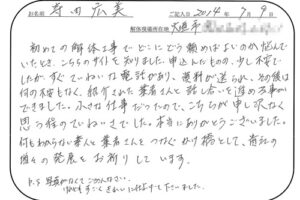 お名前 寺田 広美 ご記入日 2014年7月9日
解体現場所在地 大垣市
初めての解体工事でどこにどう頼めばよいのか悩んで
いたとき、こちらのサイトを知りました。申込したものの、少し不安で
したがすぐていねいな電話があり、資料が送られ、その後は
何の不安もなく、紹介された業者さんと話し合いを進める事が
できました。小さな仕事だったので、こちらが申し訳なく
思う程のていねいさでした。本当にありがとうございました。
何もわからない素人と業者さんをつなぐかけ橋として、貴社の
益々の発展をお祈りしています。
P.S 写真がなくてごめんなさい。
とてもすごくきれいに仕上げて下さいました。